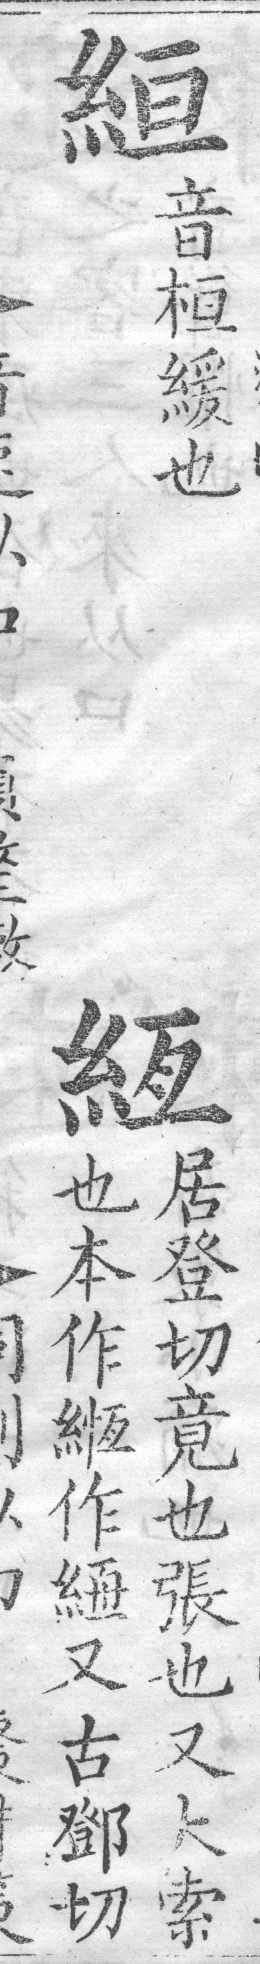 絙
音桓緩也
絚
居登切竟也張也又大索
也本作緪作 又古鄧切